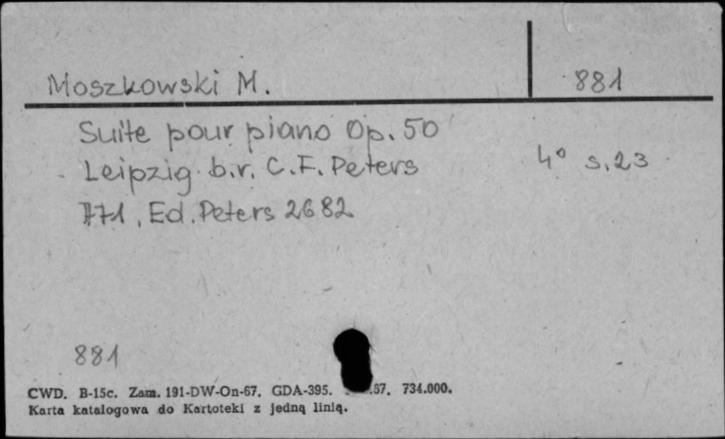 Moszkowski M. 881
Suite pour piano Op. 50
Leipzig b.r. C.F. Peters 4° s. 23
771, Ed. Peters 2682
881
CWD. B-15c. Zam. 191-DW-On-67. GDA-395. .67. 734.000.
Karta katalogowa do Kartoteki z jedną linią.